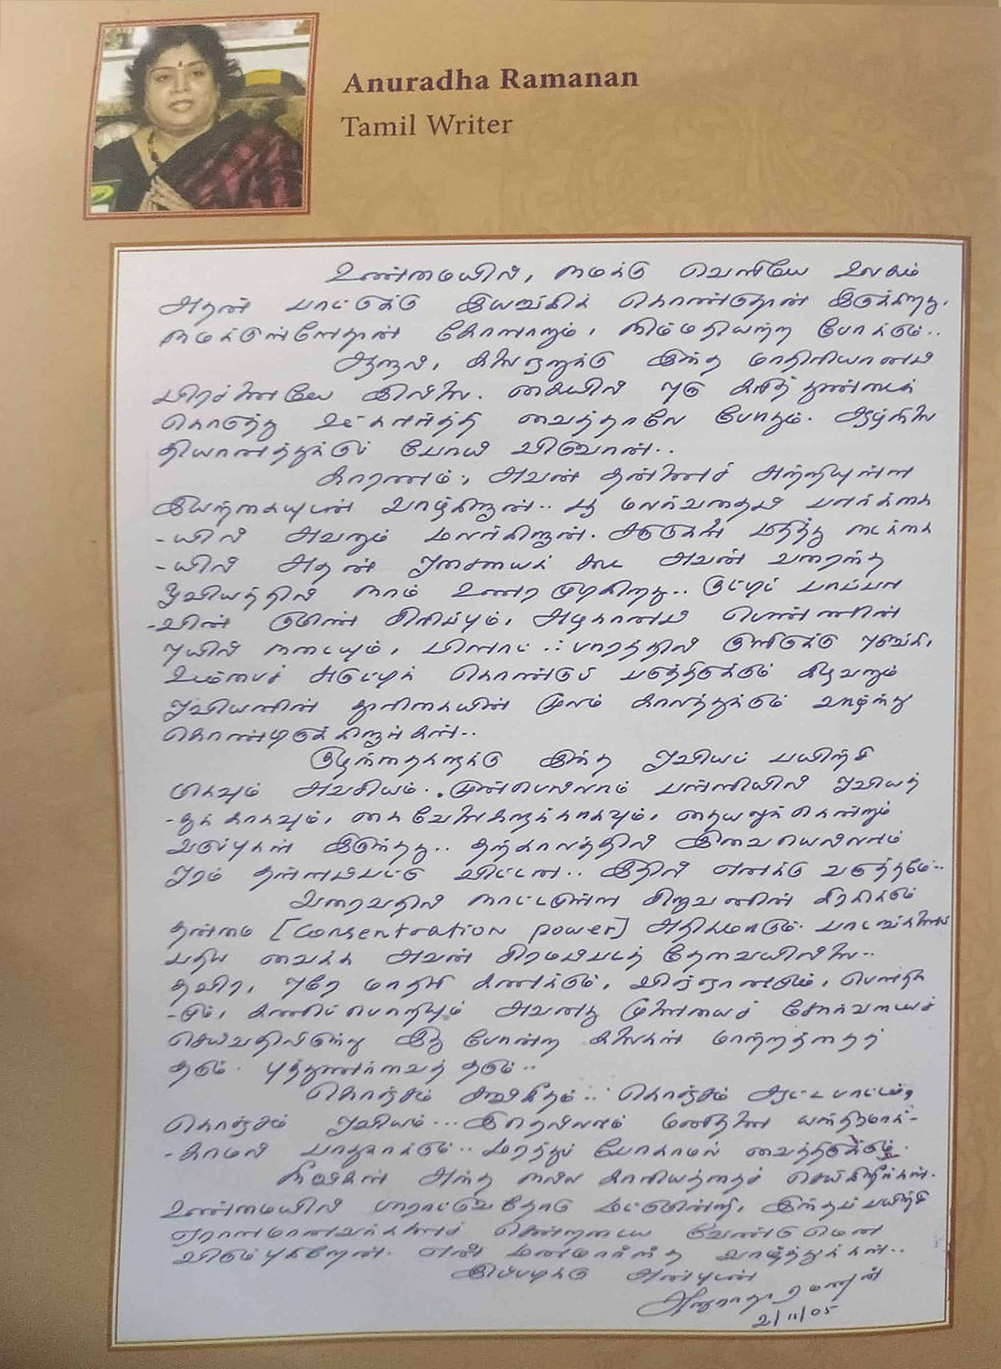 Anuradha Ramanan
Tamil Writer
உண்மையில், நமக்கு வெளியே உலகம்
அதன் பாட்டுக்கு இயங்கிக் கொண்டுதான் இருக்கிறது.
நமக்குள்ளேதான் கோளாறும், நிம்மதியற்ற போக்கும்..
ஆனால், கலைஞனுக்கு இந்த மாதிரியான
பிரச்னையே இல்லை. கையில் ஒரு கரித் துண்டைக்
கொடுத்து உட்கார்த்தி வைத்தாலே போதும். ஆழ்நிலை
தியானத்துக்குப் போய் விடுவான்..
காரணம், அவன் தன்னைச் சுற்றியுள்ள
இயற்கையுடன் வாழ்கிறான்.. பூ மலர்வதைப் பார்க்கை
-யில் அவனும் மலர்கிறான். ஆறுகள் மதித்து நடக்கை
-யில் அதன் ஓசையைக் கூட அவன் வரைந்த
ஓவியத்தில் நாம் உணர முடிகிறது.. குட்டிப் பாப்பா
-வின் குமிண் சிரிப்பும், அழகான பெண்ணின்
ஒயில் நடையும், பிளாட்ஃபாரத்தில் குளிருக்கு ஒடுங்கி,
உடம்பைச் சுருட்டிக் கொண்டு படுத்திருக்கும் கிழவனும்
ஓவியனின் தூரிகையின் மூலம் காலத்துக்கும் வாழ்ந்து
கொண்டிருக்கிறார்கள்..
குழந்தைகளுக்கு இந்த ஓவியப் பயிற்சி
மிகவும் அவசியம். முன்பெல்லாம் பள்ளியில் ஓவியத்
-துக்காகவும், கைவேலைகளுக்காகவும், தையலுக்கென்றும்
வகுப்புகள் இருந்தது.. தற்காலத்தில் இவையெல்லாம்
ஓரம் தள்ளப்பட்டு விட்டன.. இதில் எனக்கு வருத்தமே..
வரைவதில் நாட்டமுள்ள சிறுவனின் கிரகிக்கும்
தன்மை [Consentration power] அதிகமாகும். பாடங்களைப்
பதிய வைக்க அவன் சிரமப்படத் தேவையில்லை..
தவிர, ஒரே மாதிரி கணக்கும், விஞ்ஞானமும், பௌதிக
-மும், கணிப்பொறியும் அவனது மூளையைச் சோர்வடையச்
செய்வதிலிருந்து இது போன்ற கலைகள் மாற்றத்தைத்
தரும். புத்துணர்வைத் தரும்..
கொஞ்சம் சங்கீதம்.. கொஞ்சம் ஆட்டபாட்டம்,
கொஞ்சம் ஓவியம்... இதெல்லாம் மனிதனை யந்திரமாக்-
-காமல் பாதுகாக்கும்.. மரத்துப் போகாமல் வைத்திருக்கும்.
நீங்கள் அந்த நல்ல காரியத்தைச் செய்கிறீர்கள்.
உண்மையில் பாராட்டுவதோடு மட்டுமின்றி, இந்தப் பயிற்சி
ஏராளமானவர்களைச் சென்றடைய வேண்டுமென
விரும்புகிறேன். என் மனமார்ந்த வாழ்த்துக்கள்..
இப்படிக்கு அன்புடன்
அனுராதா ரமணன்
2/11/05